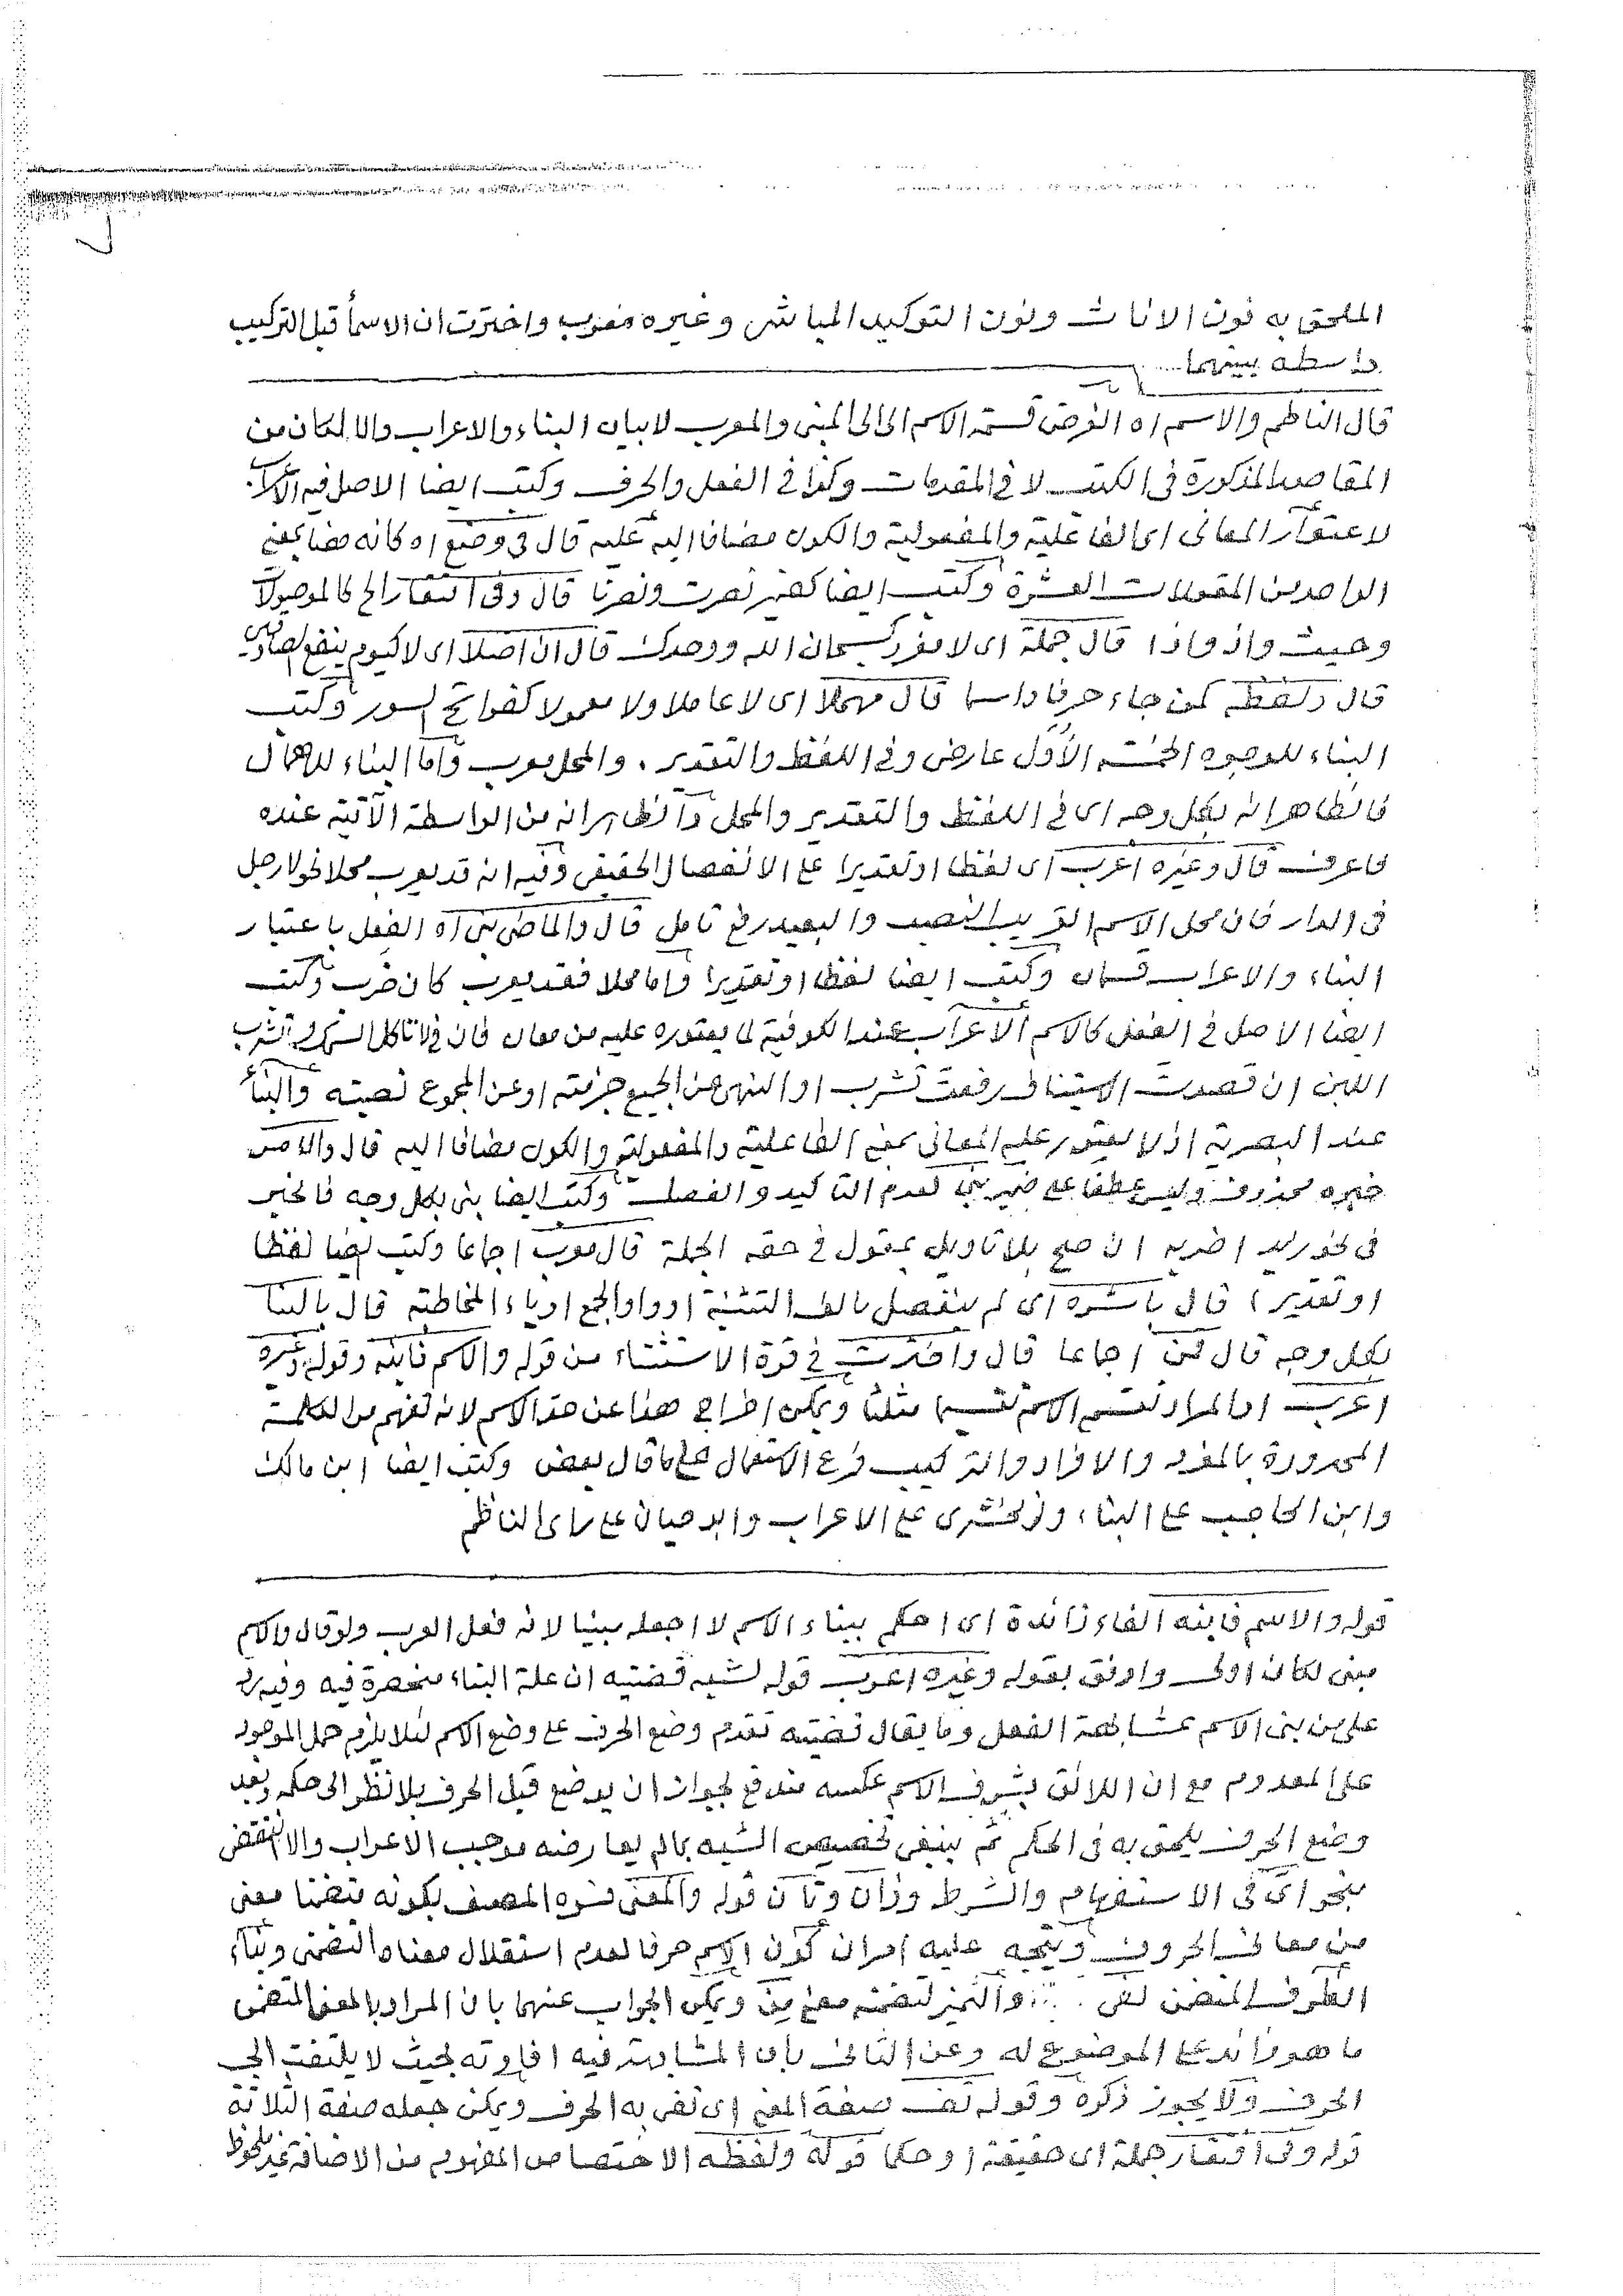 الملحق به نون الاناث ونون التوكيد المباشر وغيره معرب واخترت ان الاسما قبل التركيب
واسطه بينهما
قال الناظم والاسم اه الغرض قسمة الاسم الى المبنى والمعرب لا بيان البناء والاعراب والا لكان من
المقاصد المذكورة فى الكتب لا فى المقدمات وكذا فى الفعل والحرف وكتب ايضا الاصل فيه الاعراب
لاعتوار المعانى اى الفاعلية والمفعولية والكون مضافا اليه عليه قال فى وضع اه كانه مضا بمعنى
الواحد من المقولات العشرة وكتب ايضا كضمير نصرت ونصرنا قال وفى افتقار الخ كالموصولا
وحيث واذ واذا قال جملة اى لا مفرد كسبحان الله ووحدك قال ان اصلا اى لا كيوم ينفع الصادقين
قال ولفظه كمن جاء حرفا واسما قال مهملا اى لا عاملا ولا معمولا كفواتح السور وكتب
البناء للوجوه الخمسة الأول عارض وفى اللفظ والتقدير . والمحل معرب واما البناء للاهمال
فالظاهر انه بكل وجه اى فى اللفظ والتقدير والمحل والظاهر انه من الواسطة الآتية عنده
فاعرف قال وغيره اعرب اى لفظا او تقديرا على الانفصال الحقيقى وفيه انه قد يعرب محلا نحو لا رجل
فى الدار فان محل الاسم القريب النصب والبعيد رفع تامل قال والماضى بنى اه الفعل باعتبار
البناء والاعراب قسمان وكتب ايضا لفظا او تقديرا واما محلا فقد يعرب كان ضرب وكتب
ايضا الاصل فى الفعل كالاسم الاعراب عند الكوفية لما يعتوره عليه من معان فان فى لا تاكل السمك وتشرب
اللبن ان قصدت الاستيناف رفعت تشرب او النهى عن الجميع جزمته او عن المجموع نصبته والبناء
عند البصرية اذ لا يعتور عليه المعانى بمعنى الفاعلية والمفعولية والكون مضافا اليه قال والامر
خبره محذوف وليس عطفا على ضمير بنى لعدم التاكيد والفصل وكتب ايضا بنى بكل وجه فالخبر
فى نحو زيد اضربه ان صح بلا تاويل بمقول فى حقه الجملة قال معرب اجماعا وكتب ايضا لفظا
او تقديرا قال باشره اى لم ينفصل بالف التثنية او واو الجمع او ياء المخاطبة قال بالبنا
بكل وجه قال قمن اجماعا قال واخترت فى قوة الاستثناء من قوله والاسم فابنه وقوله وغيره
اعرب اذ المراد تقسيم الاسم تقسيما مثلثا ويمكن اخراج هذا عن حد الاسم لانه تفهم من الكلمة
المحدودة بالمفرد والافراد والتركيب فرع الاستعمال على ما قال بعض وكتب ايضا ابن مالك
وابن الحاجب على البناء وزمخشرى على الاعراب وابو حيان على راى الناظم
قوله والاسم فابنه الفاء زائدة اى احكم ببناء الاسم لا اجعله مبنيا لانه فعل العرب ولو قال والاسم
مبنى لكان اولى واوفق بقوله وغيره اعرب قوله لشبه قضيته ان علة البناء منحصرة فيه وفيه رد
على من بنى الاسم بمشابهة الفعل وما يقال قضيته تقدم وضع الحرف على وضع الاسم لئلا يلزم حمل الموجود
على المعدوم مع ان اللائق بشرف الاسم عكسه مندفع لجواز ان يوضع قبل الحرف بلا نظر الى حكمه وبعد
وضع الحرف يلحق به فى الحكم ثم ينبغى تخصيص الشبه بما لم يعارضه موجب الاعراب والا انتقض
بنحو اى فى الاستفهام والشرط وذان وتان قوله والمعنى فسره المصنف بكونه متضمنا معنى
من معانى الحروف ويتجه عليه امران كون الاسم حرفا لعدم استقلال معناه التضمنى وبناء
الظرف المتضمن لفى والتميز لتضمنه معنى من ويمكن الجواب عنهما بان المراد بالمعنى المتضمن
ما هو زائد على الموضوع له وعن الثانى بان المشابهة فيه افادته بحيث لا يلتفت الى
الحرف ولا يجوز ذكره وقوله صفة المعنى اى تفى به الحرف ويمكن جعله صفة الثلاثة
قوله وفى افتقار جملة اى حقيقة او حكما قوله ولفظه الاختصاص المفهوم من الاضافة غير ملحوظ